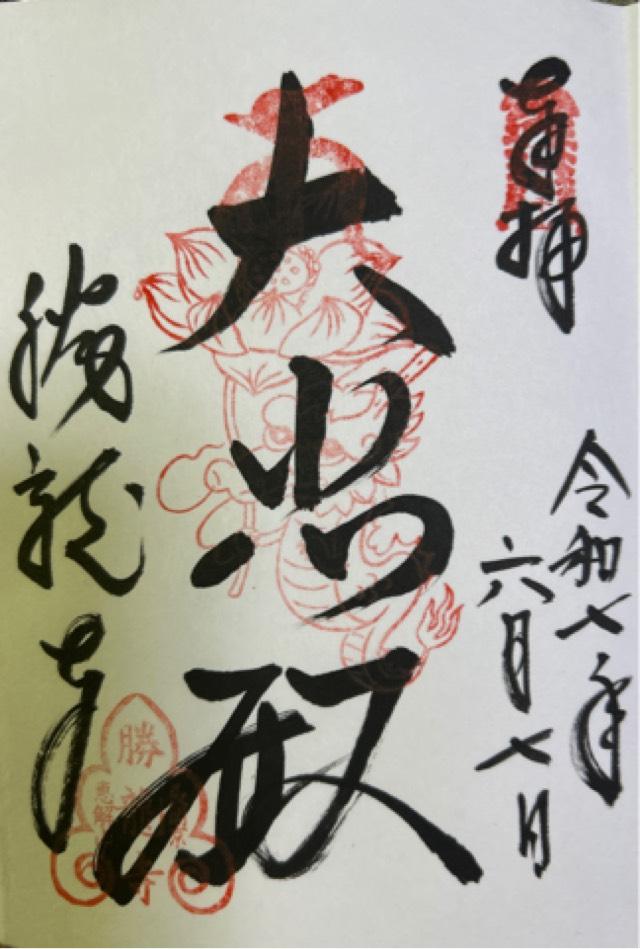 奉拝
令和七年
六月七日
大悲殿
勝龍寺
勝龍寺